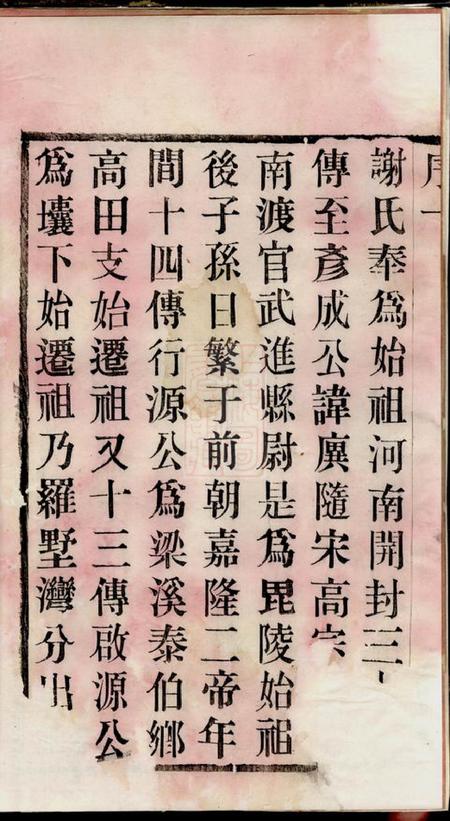 序一
謝氏奉爲始祖河南開封三
傳至彥成公諱廙隨宋高宗
南渡官武進縣尉是爲毘陵始祖
後子孫日繁于前朝嘉隆二帝年
間十四傳行源公爲梁溪泰伯鄉
高田支始遷祖又十三傳啟源公
爲壤下始遷祖乃羅墅灣分出